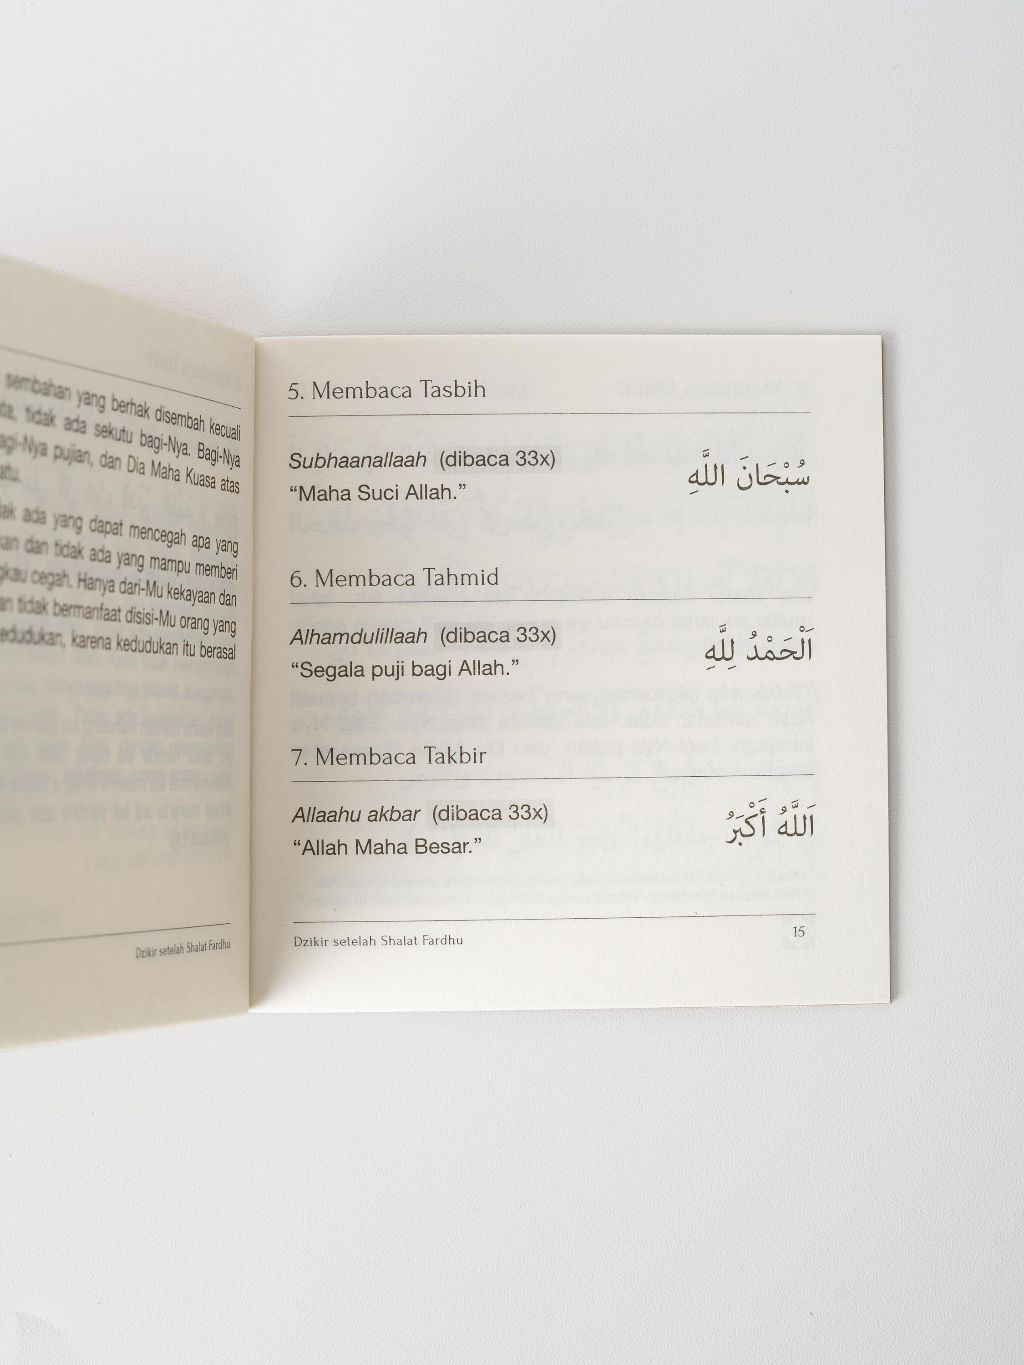 sembahan yang berhak disembah kecuali
tidak ada sekutu bagi-Nya. Bagi-Nya
pujian, dan Dia Maha Kuasa atas
ada yang dapat mencegah apa yang
dan tidak ada yang mampu memberi
cegah. Hanya dari-Mu kekayaan dan
tidak bermanfaat disisi-Mu orang yang
karena kedudukan itu berasal
Dzikir setelah Shalat Fardhu
5. Membaca Tasbih
Subhaanallaah (dibaca 33x)
سُبْحَانَ اللَّهِ
“Maha Suci Allah.”
6. Membaca Tahmid
Alhamdulillaah (dibaca 33x)
اَلْحَمْدُ لِلَّهِ
“Segala puji bagi Allah.”
7. Membaca Takbir
Allaahu akbar (dibaca 33x)
اَللَّهُ أَكْبَرُ
“Allah Maha Besar.”
Dzikir setelah Shalat Fardhu
15